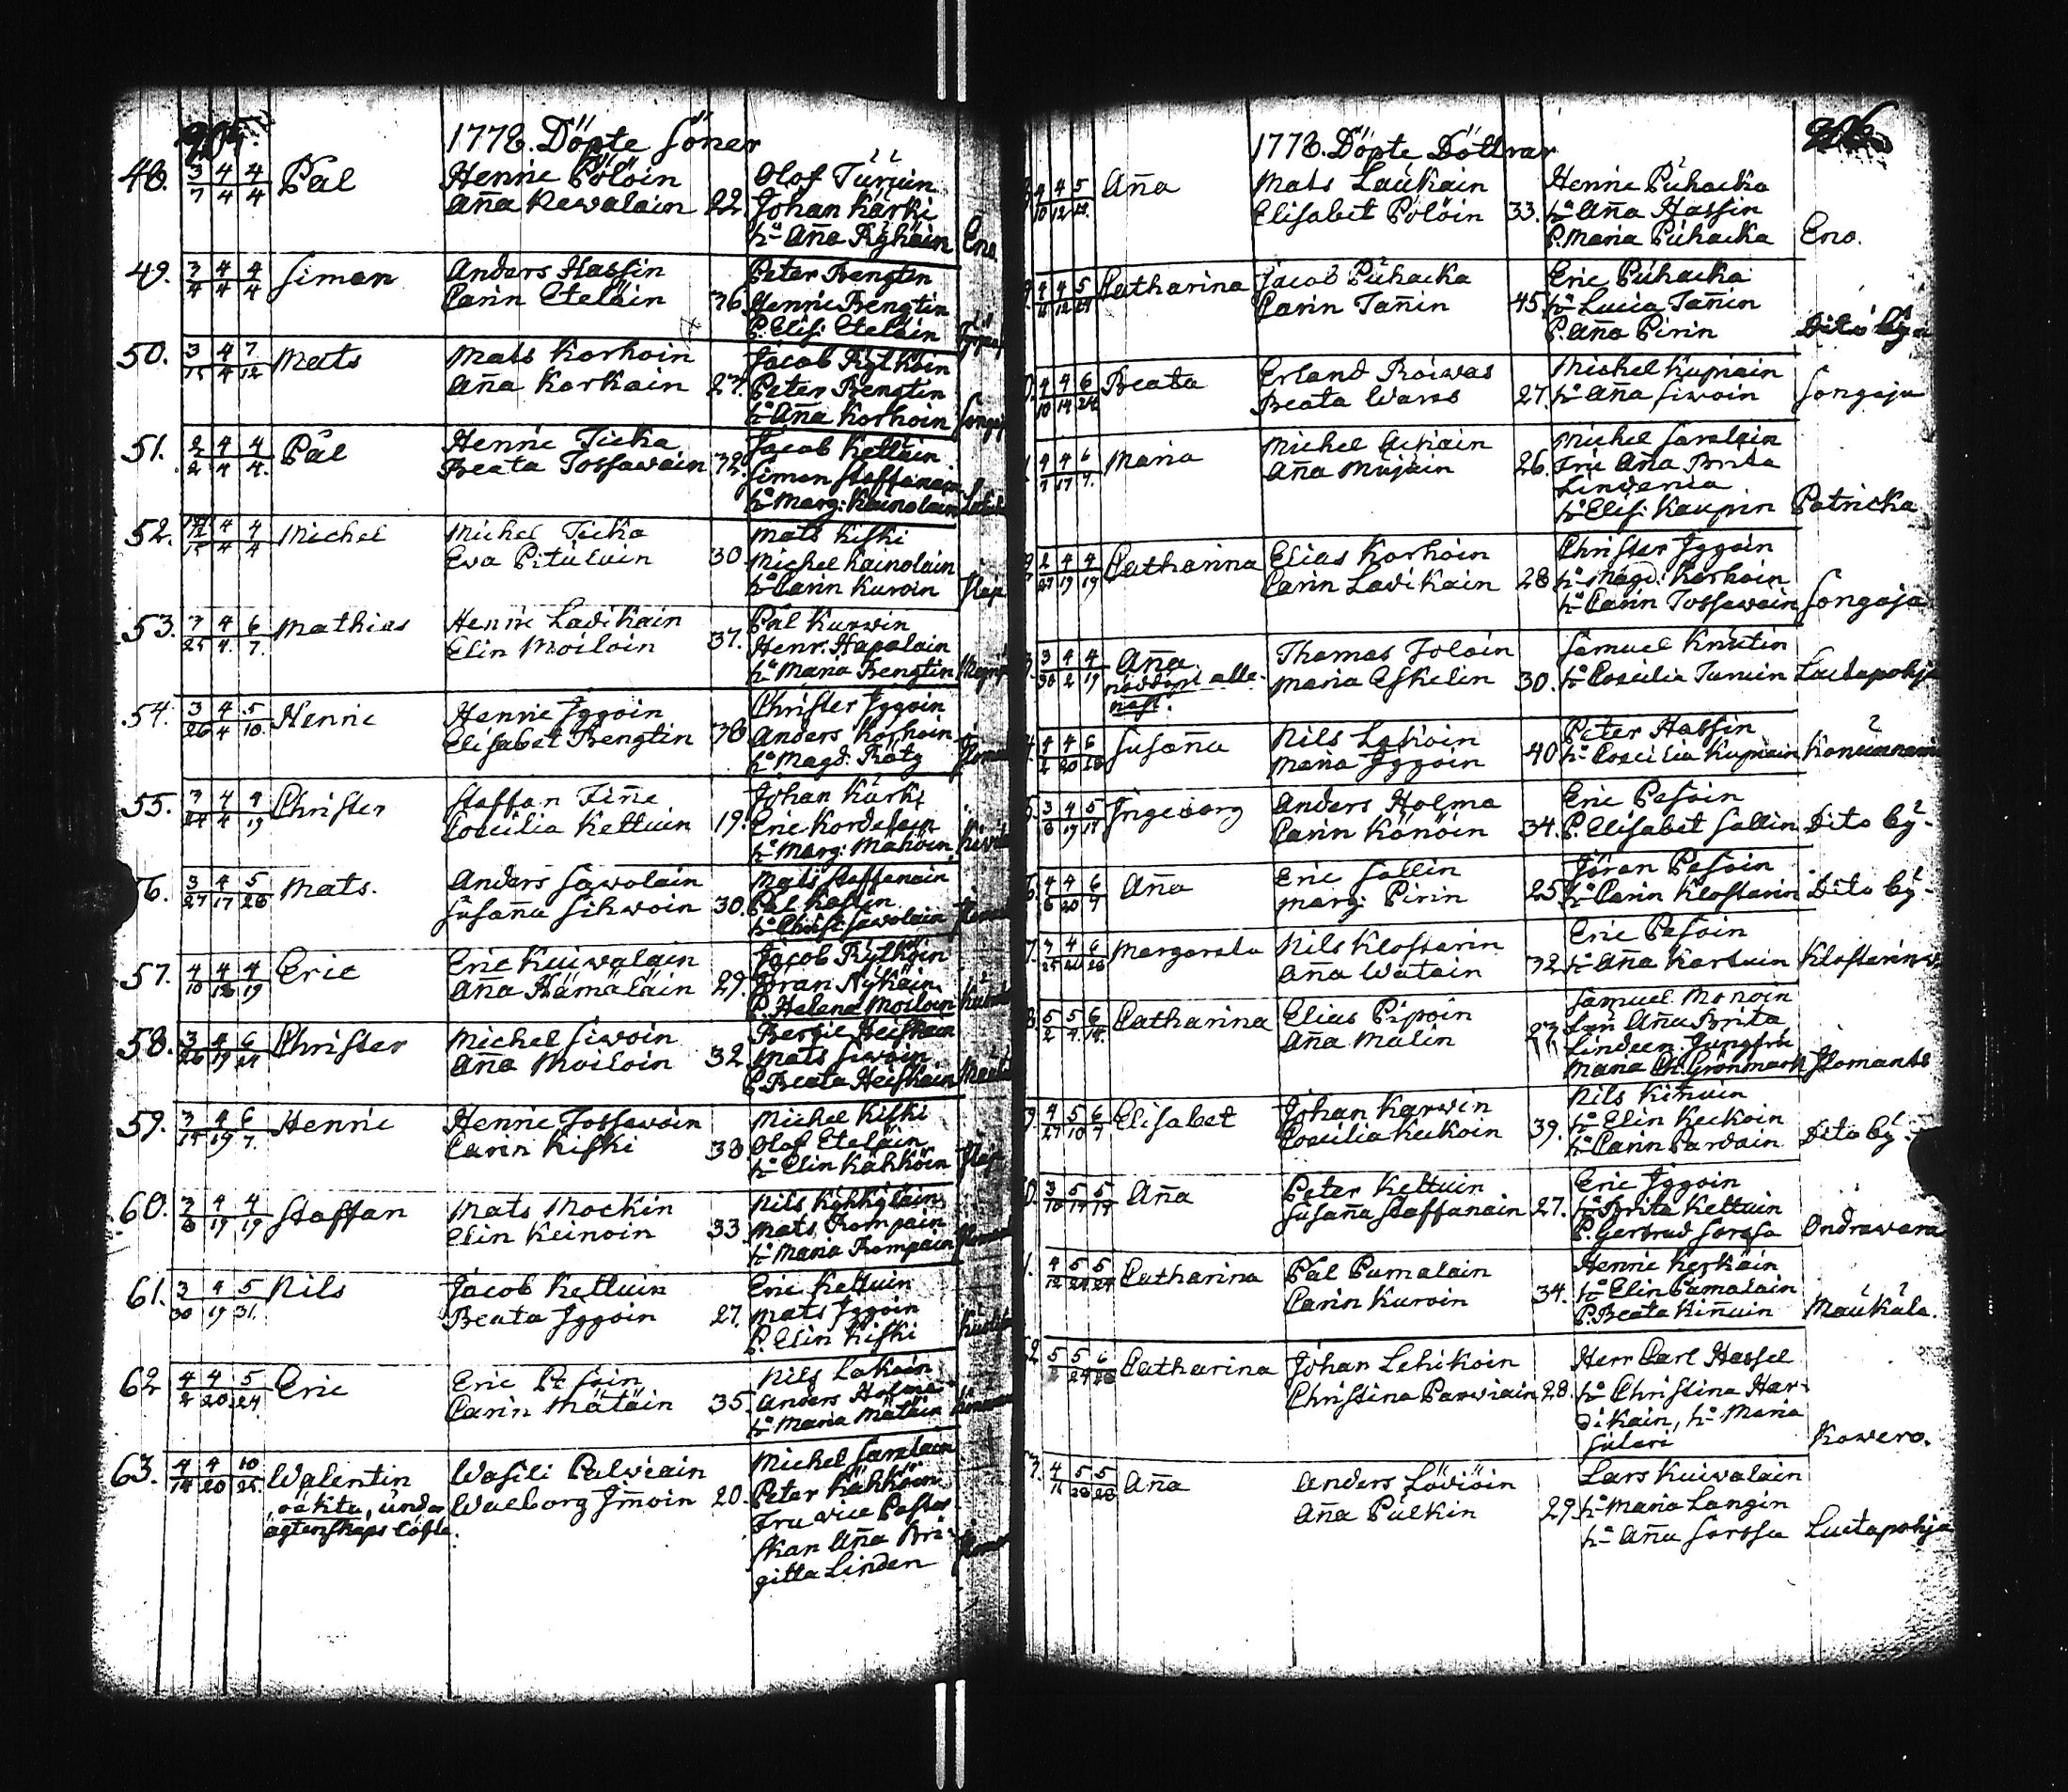 1778. Döpte Söner
48. 3/7 4/4 4/4 Pål Henric Pölöin
Anna Kewalain 22.
Olof Turuin
Johan Kärki
h:o Anna Ryhäin Eno.
49. 3/4 4/4 4/4 Simon Anders Hassin
Carin Eteläin 36
Peter Bengtin
Henric Bengtin
P. Elis: Eteläin
50. 3/15 4/4 7/12 Mats Mats Korhoin
Anna Korkain 27.
Jacob Kytköin
Peter Bengtin
h:o Anna Korhoin
51. 2/2 4/4 4/4 Pål Henric Ticka
Beata Tossawain 32.
Jacob Kettuin
Simon Staffanain
h:o Marg: Kainolain
52. 4/4 4/4 Michel Michel Ticka
Eva Pituluin 30.
Mats Kiski
Michel Kainolain
h:o Carin Kuroin
53. 3/25 4/4 6/7 Mathias Henric Ladikain
Elin Moiloin 37.
Pål Kurwin
Henr. Hapalain
h:o Maria Bengtin
54. 3/26 4/4 5/10 Henric Henric Iggoin
Elisabet Bengtin 38
Christer Iggoin
Anders Korhoin
h:o Magd: Rötg
55. 3/24 4/4 4/19 Christer Staffan Finne
Coecilia Kettuin 19.
Johan Kärki
Eric Kordelain
h:o Marg: Mahöin
56. 3/27 4/17 5/26 Mats. Anders Sawolain
Susanna Sihwoin 30.
Mats Staffanain
Pål
h:o Christ: Sawolain
57. 4/10 4/18 4/19 Eric Eric Kuiwalain
Anna Hämäläin 29.
Jacob Kytköin
Jöran Nykäin
P. Helena Moiloin
58. 3/26 4/19 6/24 Christer Michel Siwoin
Anna Moiloin 32.
Heiskain
Mats Siwoin
P. Beata Heiskain
59. 3/15 4/19 6/7 Henric Henric Tossawoin
Carin Kiski 38
Michel Kiski
Olof Eteläin
h:o Elin Kähköin
60. 3/8 4/19 4/19 Staffan Mats Mockin
Elin Keinoin 33.
Nils Kyhkyläin
Mats Rompain
h:o Maria Rompain
61. 3/30 4/19 5/31. Nils Jacob Kettuin
Beata Iggoin 27.
Eric Kettuin
Mats Iggoin
P. Elin Kiski
62 4/2 4/20 5/24. Eric Eric Pesoin
Carin Mätäin 35.
Nils Lakoin
Anders Holma
h:o Maria Mätäin
63. 4/18 4/20 10/25. Walentin
oäkta, under
ägtenskaps löfte.
Wasili Palwiain
Walborg Immoin 20.
Michel Saralain
Peter Kähköin
Fru vice Pastor-
skan Anna Bri-
gitta Linden
1778. Döpte Döttrar
4/10 4/12 Anna Mats Laukain
Elisabet Pölöin 33.
Henric Puhacka
h:o Anna Hassin
P. Maria Puhacka Eno.
Catharina Jacob Puhacka
Carin Tannin 45.
Eric Puhacka
h:o Lucia Tannin
P. Anna Pirin Dito by
4/10 4/14 6/24 Beata Erland Roiwas
Beata Warss 27.
Michel Kupiain
h:o Anna Siwoin Songaja
4/7 4/17 6/7. Maria Michel
Anna Mujuin 26.
Michel Saralain
Fru Anna Brita
Lindenia
h:o Elis: Kaupin Patricka
2/27 4/19 4/19 Catharina Elias Korhoin
Carin Ladikain 28
Christer Iggoin
h:o Magd: Korhoin
h:o Carin Tossawain Songaja
3/30 4/2 4/19 Anna
nöddöpt alle-
nast.
Thomas Joloin
Maria Eskelin 30.
Samuel Knutin
h:o Coecilia Turuin Luctapohja
4/2 4/20 6/28 Susanna Nils Lakoin
Maria Iggoin 40
Peter Hassin
h:o Coecilia Kupiain
3/8 4/19 5/17 Ingeborg Anders Holma
Carin Könöin 34.
Eric Pesoin
P. Elisabet Sallin Dito by
4/6 4/20 6/7 Anna Eric Sallin
Marg: Pirin 25
Jöran Pesoin
h:o Carin Klostarin Dito by
Margareta Nils Klostarin
Anna Watain 32
Eric Pesoin
h:o Anna Kartuin
5/2 Catharina Elias Pipoin
Anna Malin
Samuel Monoin
Anna Brita
Lindeen. Jungfru
Maria Ch: Grönmark Ilomants
4/27 5/10 6/7 Elisabet Johan Karwin
Coecilia Keckoin 39.
Nils Kituin
h:o Elin Keckoin
h:o Carin Parwain Dito by
3/10 5/17 5/17 Anna Peter Kettuin
Susanna Staffanain 27.
Eric Iggoin
h:o Brita Kettuin
P. Gertrud Sorssa Ondrawara
4/12 5/24 5/24 Catharina Pål Pamalain
Carin Kuroin 34.
Henric Kerkäin
h:o Elin Pamalain
P. Beata Kinnuin Maukala.
5/2 5/24 6/28 Catharina Johan Lehikoin
Christina Parwiain 28.
Herr Carl Hassel
h:o Christina Har-
dikain, h:o Maria
Sulari Kowero.
4/14 5/28 5/28 Anna Anders Löviöin
Anna Pulkin 29
Lars Kuiwalain
h:o Maria Langin
h:o Anna Sorssa Luctapohja